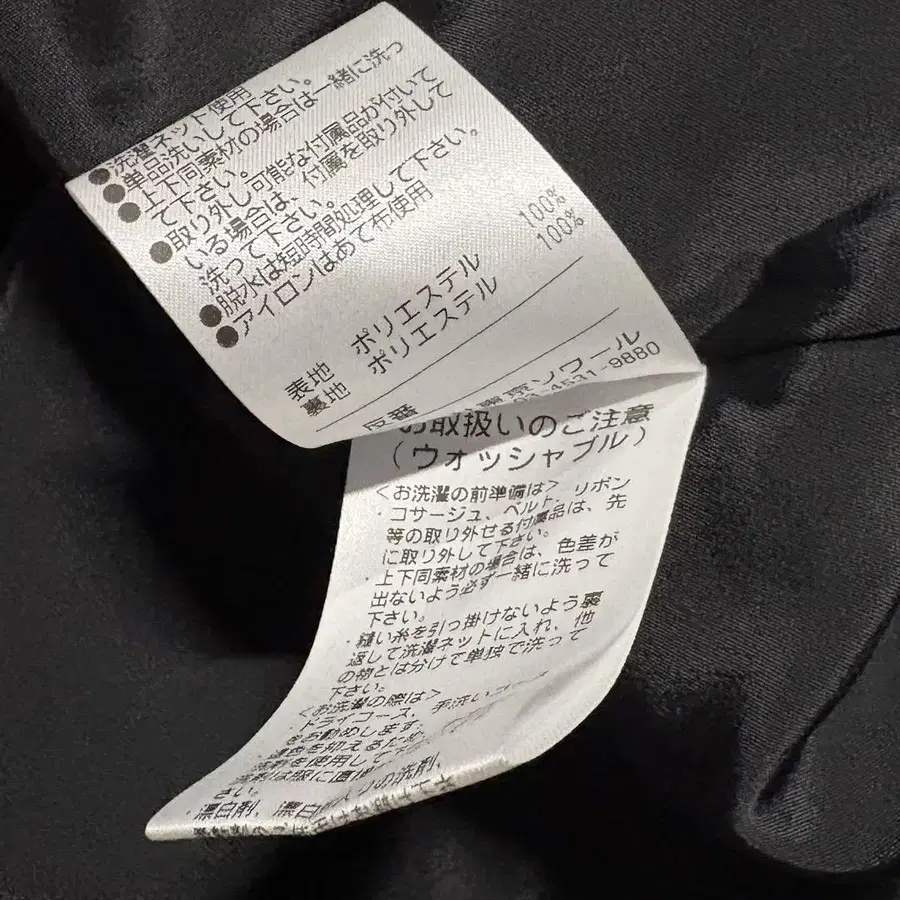 ●洗濯ネット使用
●単品洗いして下さい。
●上下同素材の場合は一緒に洗っ
て下さい。
●取り外し可能な付属品が付いて
いる場合は、付属を取り外して
洗って下さい。
●脱水は短時間処理して下さい。
●アイロンはあて布使用
表地 ポリエステル 100%
裏地 ポリエステル 100%
反番
東京ソワール
03-4531-9880
お取扱いのご注意
(ウォッシャブル)
<お洗濯の前準備は>
・コサージュ、ベルト、リボン
等の取り外せる付属品は、先
に取り外して下さい。
・上下同素材の場合は、色差が
出ないよう必ず一緒に洗って
下さい。
・縫い糸を引っ掛けないよう裏
返して洗濯ネットに入れ、他
の物とは分けて単独で洗って
下さい。
<お洗濯の際は>
・ドライコース、手洗いコース
をお勧めします。
を抑えるため、
剤を使用して下
は服に直接
さい。
・漂白剤、漂白 りの洗剤、